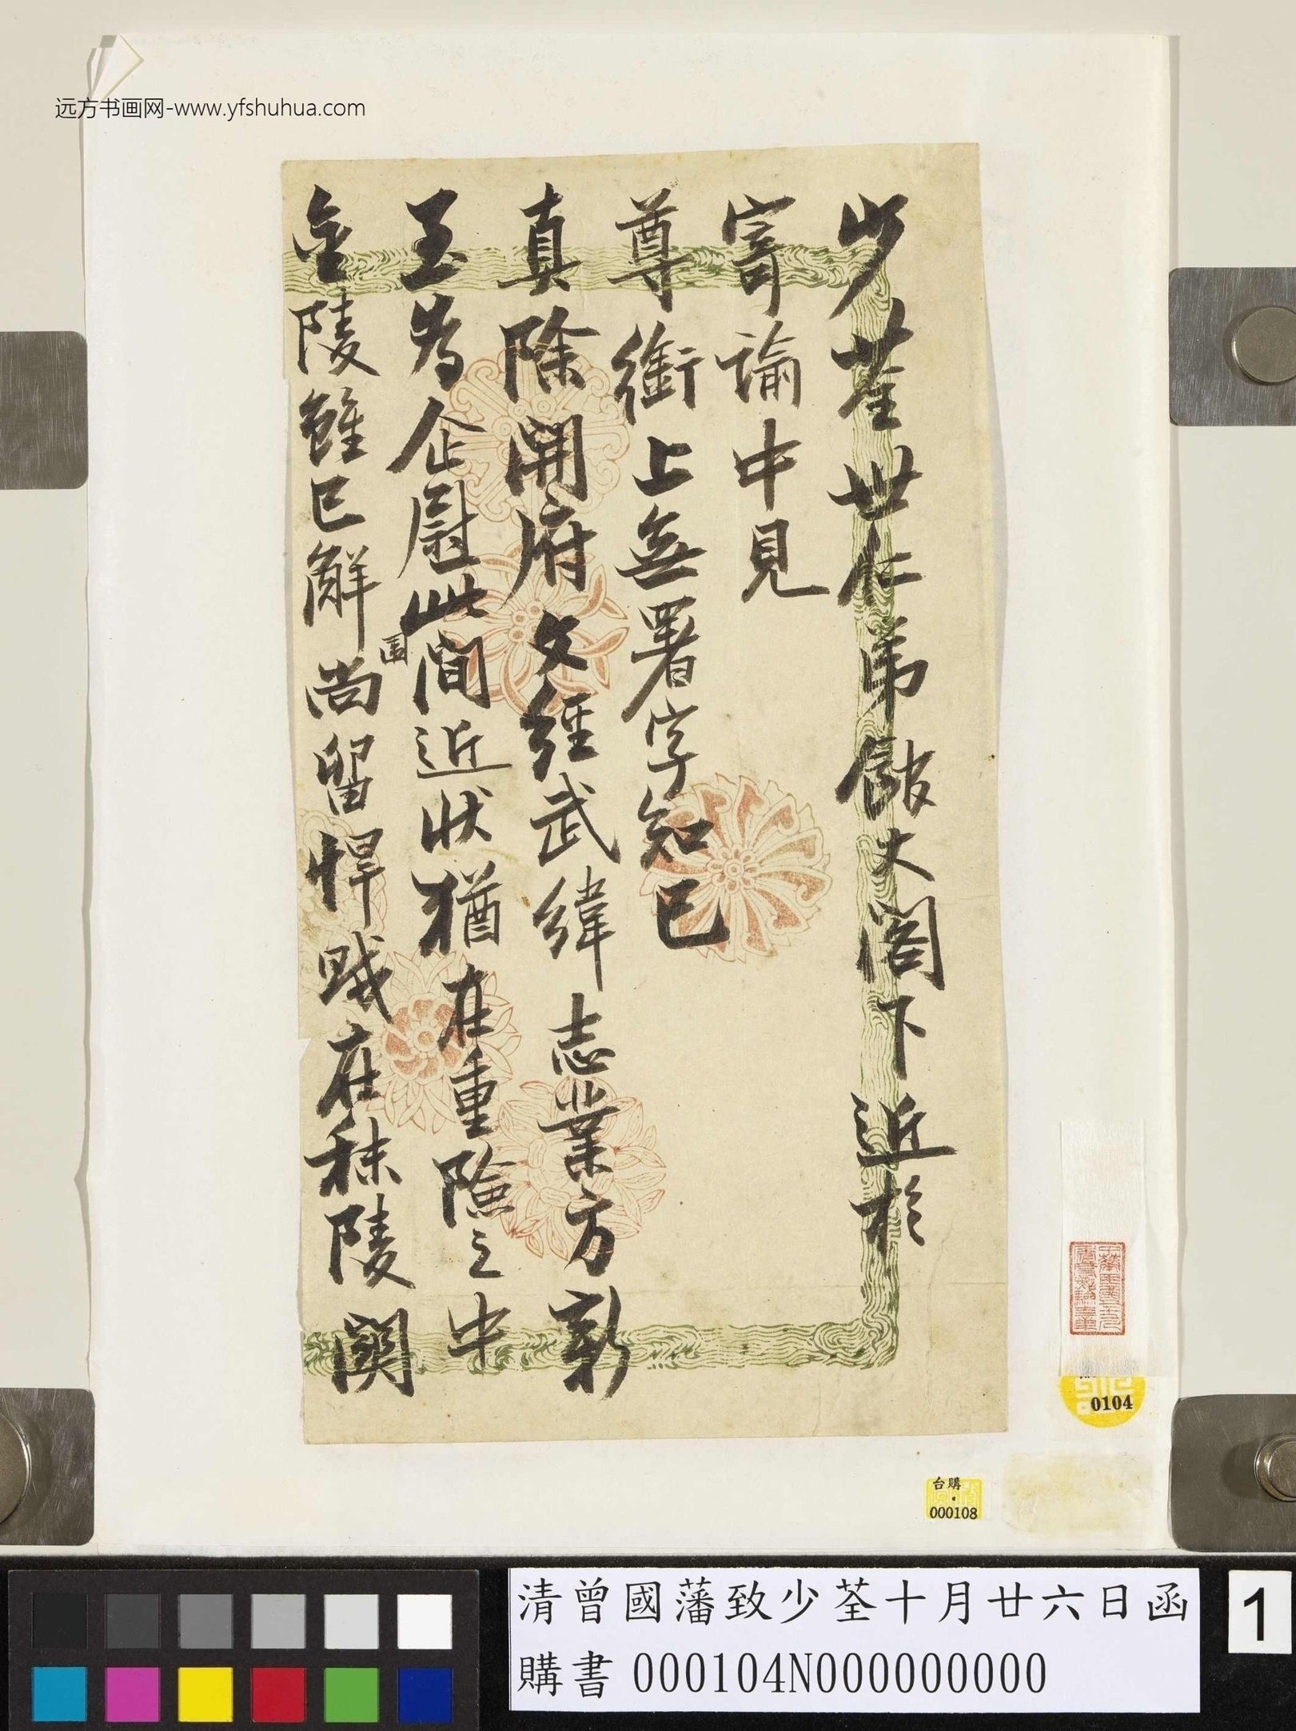 远方书画网-www.yfshuhua.com
少荃世仁弟館丈閣下近於
寄諭中見
尊銜上無署字知已
真除開府文經武緯志業方新
至為企慰此間近狀猶在重險之中
金陵雖已解圍尚留悍賊在秣陵關
0104
台購
000108
清曾國藩致少荃十月廿六日函
購書000104N000000000
1